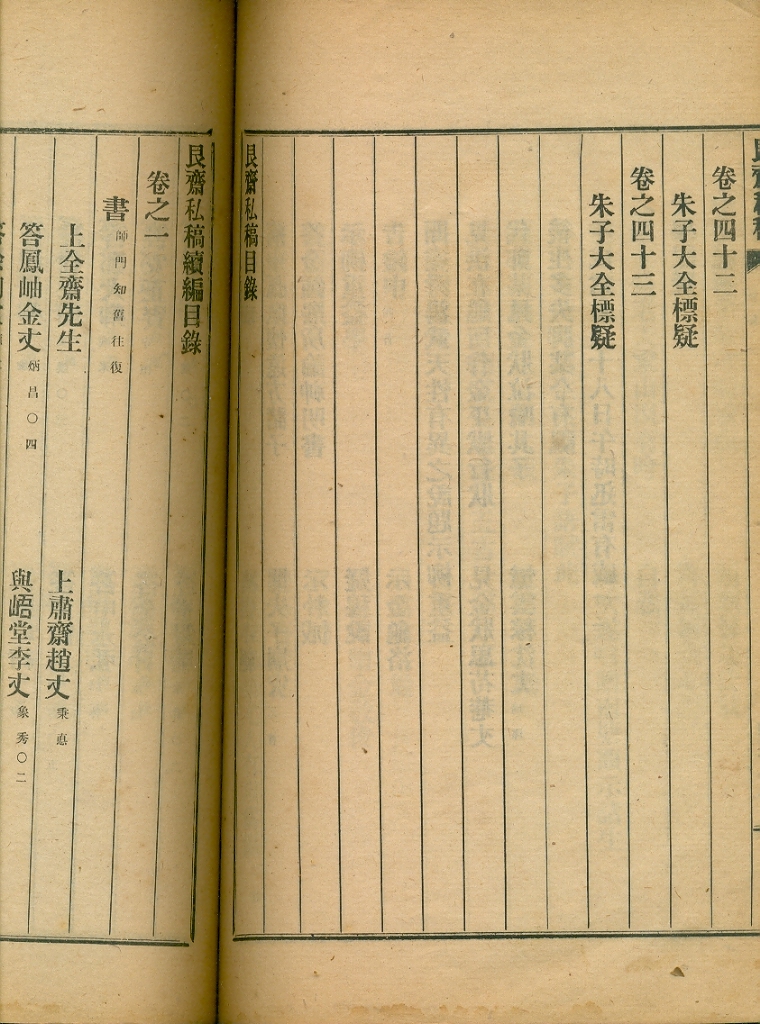 卷之四十二
朱子大全標疑
卷之四十三
朱子大全標疑
艮齋私稿目錄
艮齋私稿續編目錄
卷之一
書 師門知舊往復
上全齋先生 上肅齋趙丈 秉悳
答鳳岫金丈 炳昌〇四 與峿堂李丈 象秀〇二